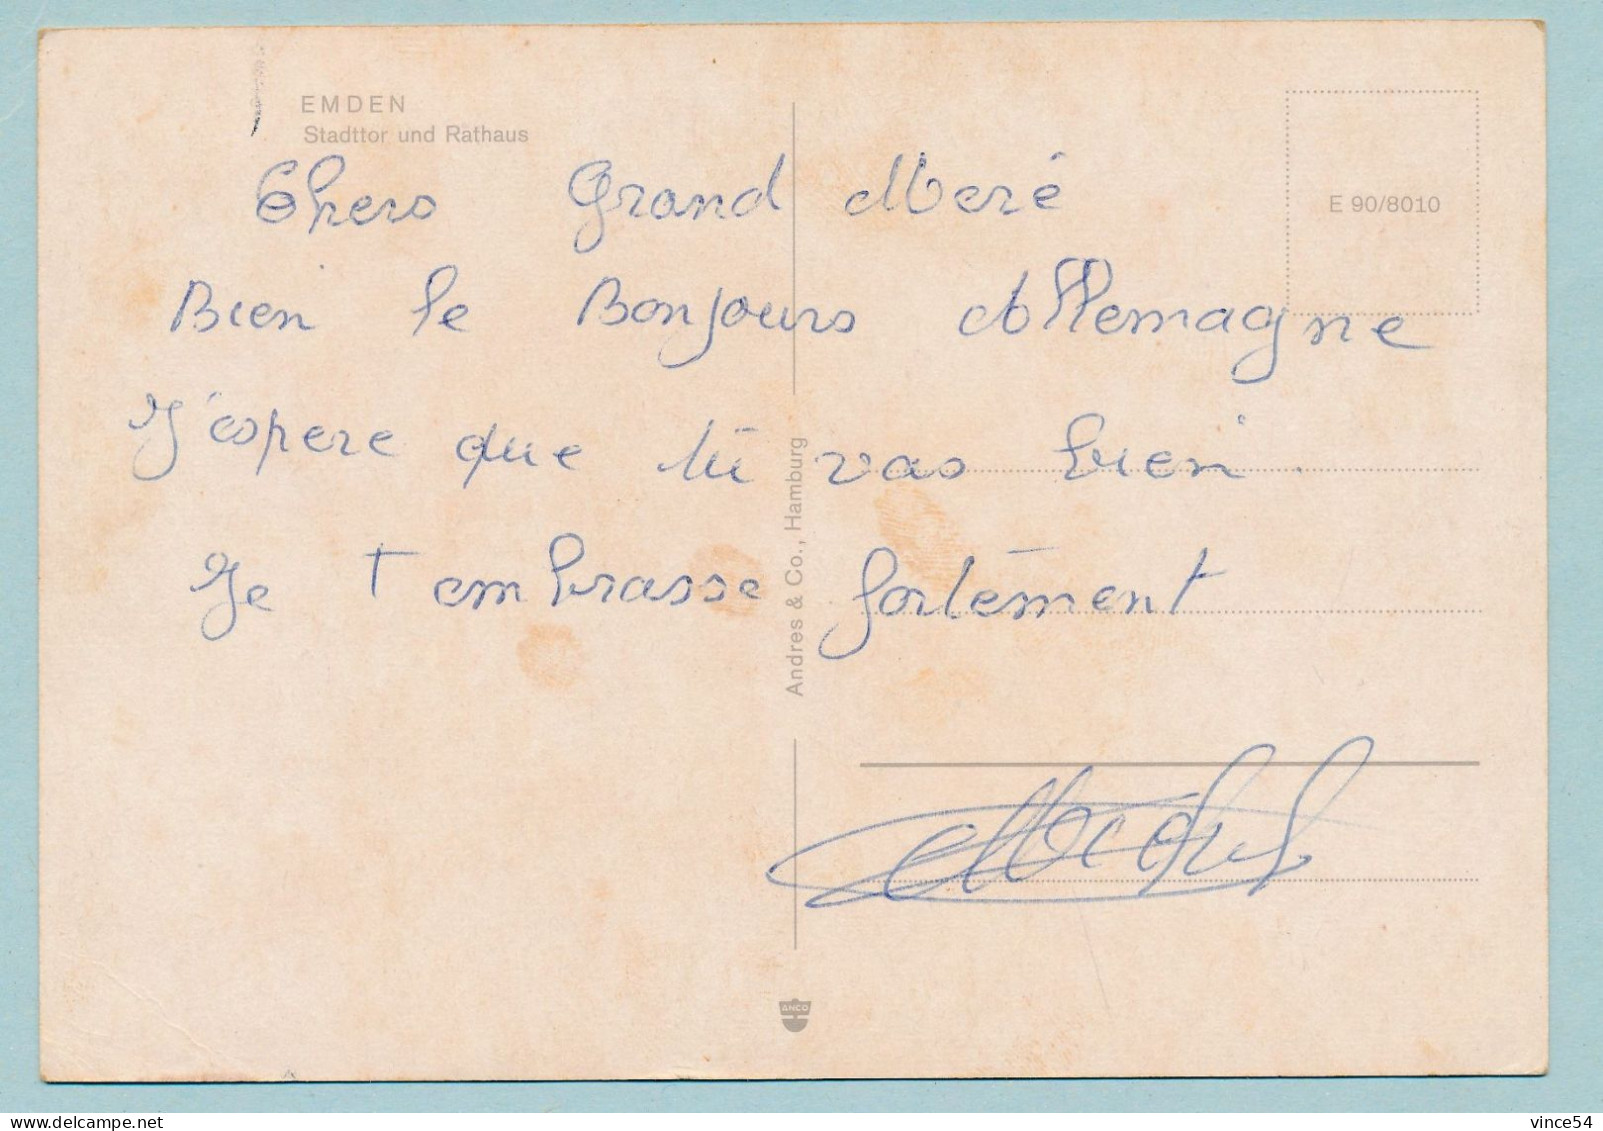 EMDEN
Stadttor und Rathaus
Chers Grand Meré
Bien le Bonjours Allemagne
J'espere que tu vas bien.
Je t embrasse fortement
E 90/8010
Andres & Co., Hamburg
ANCO
vince54